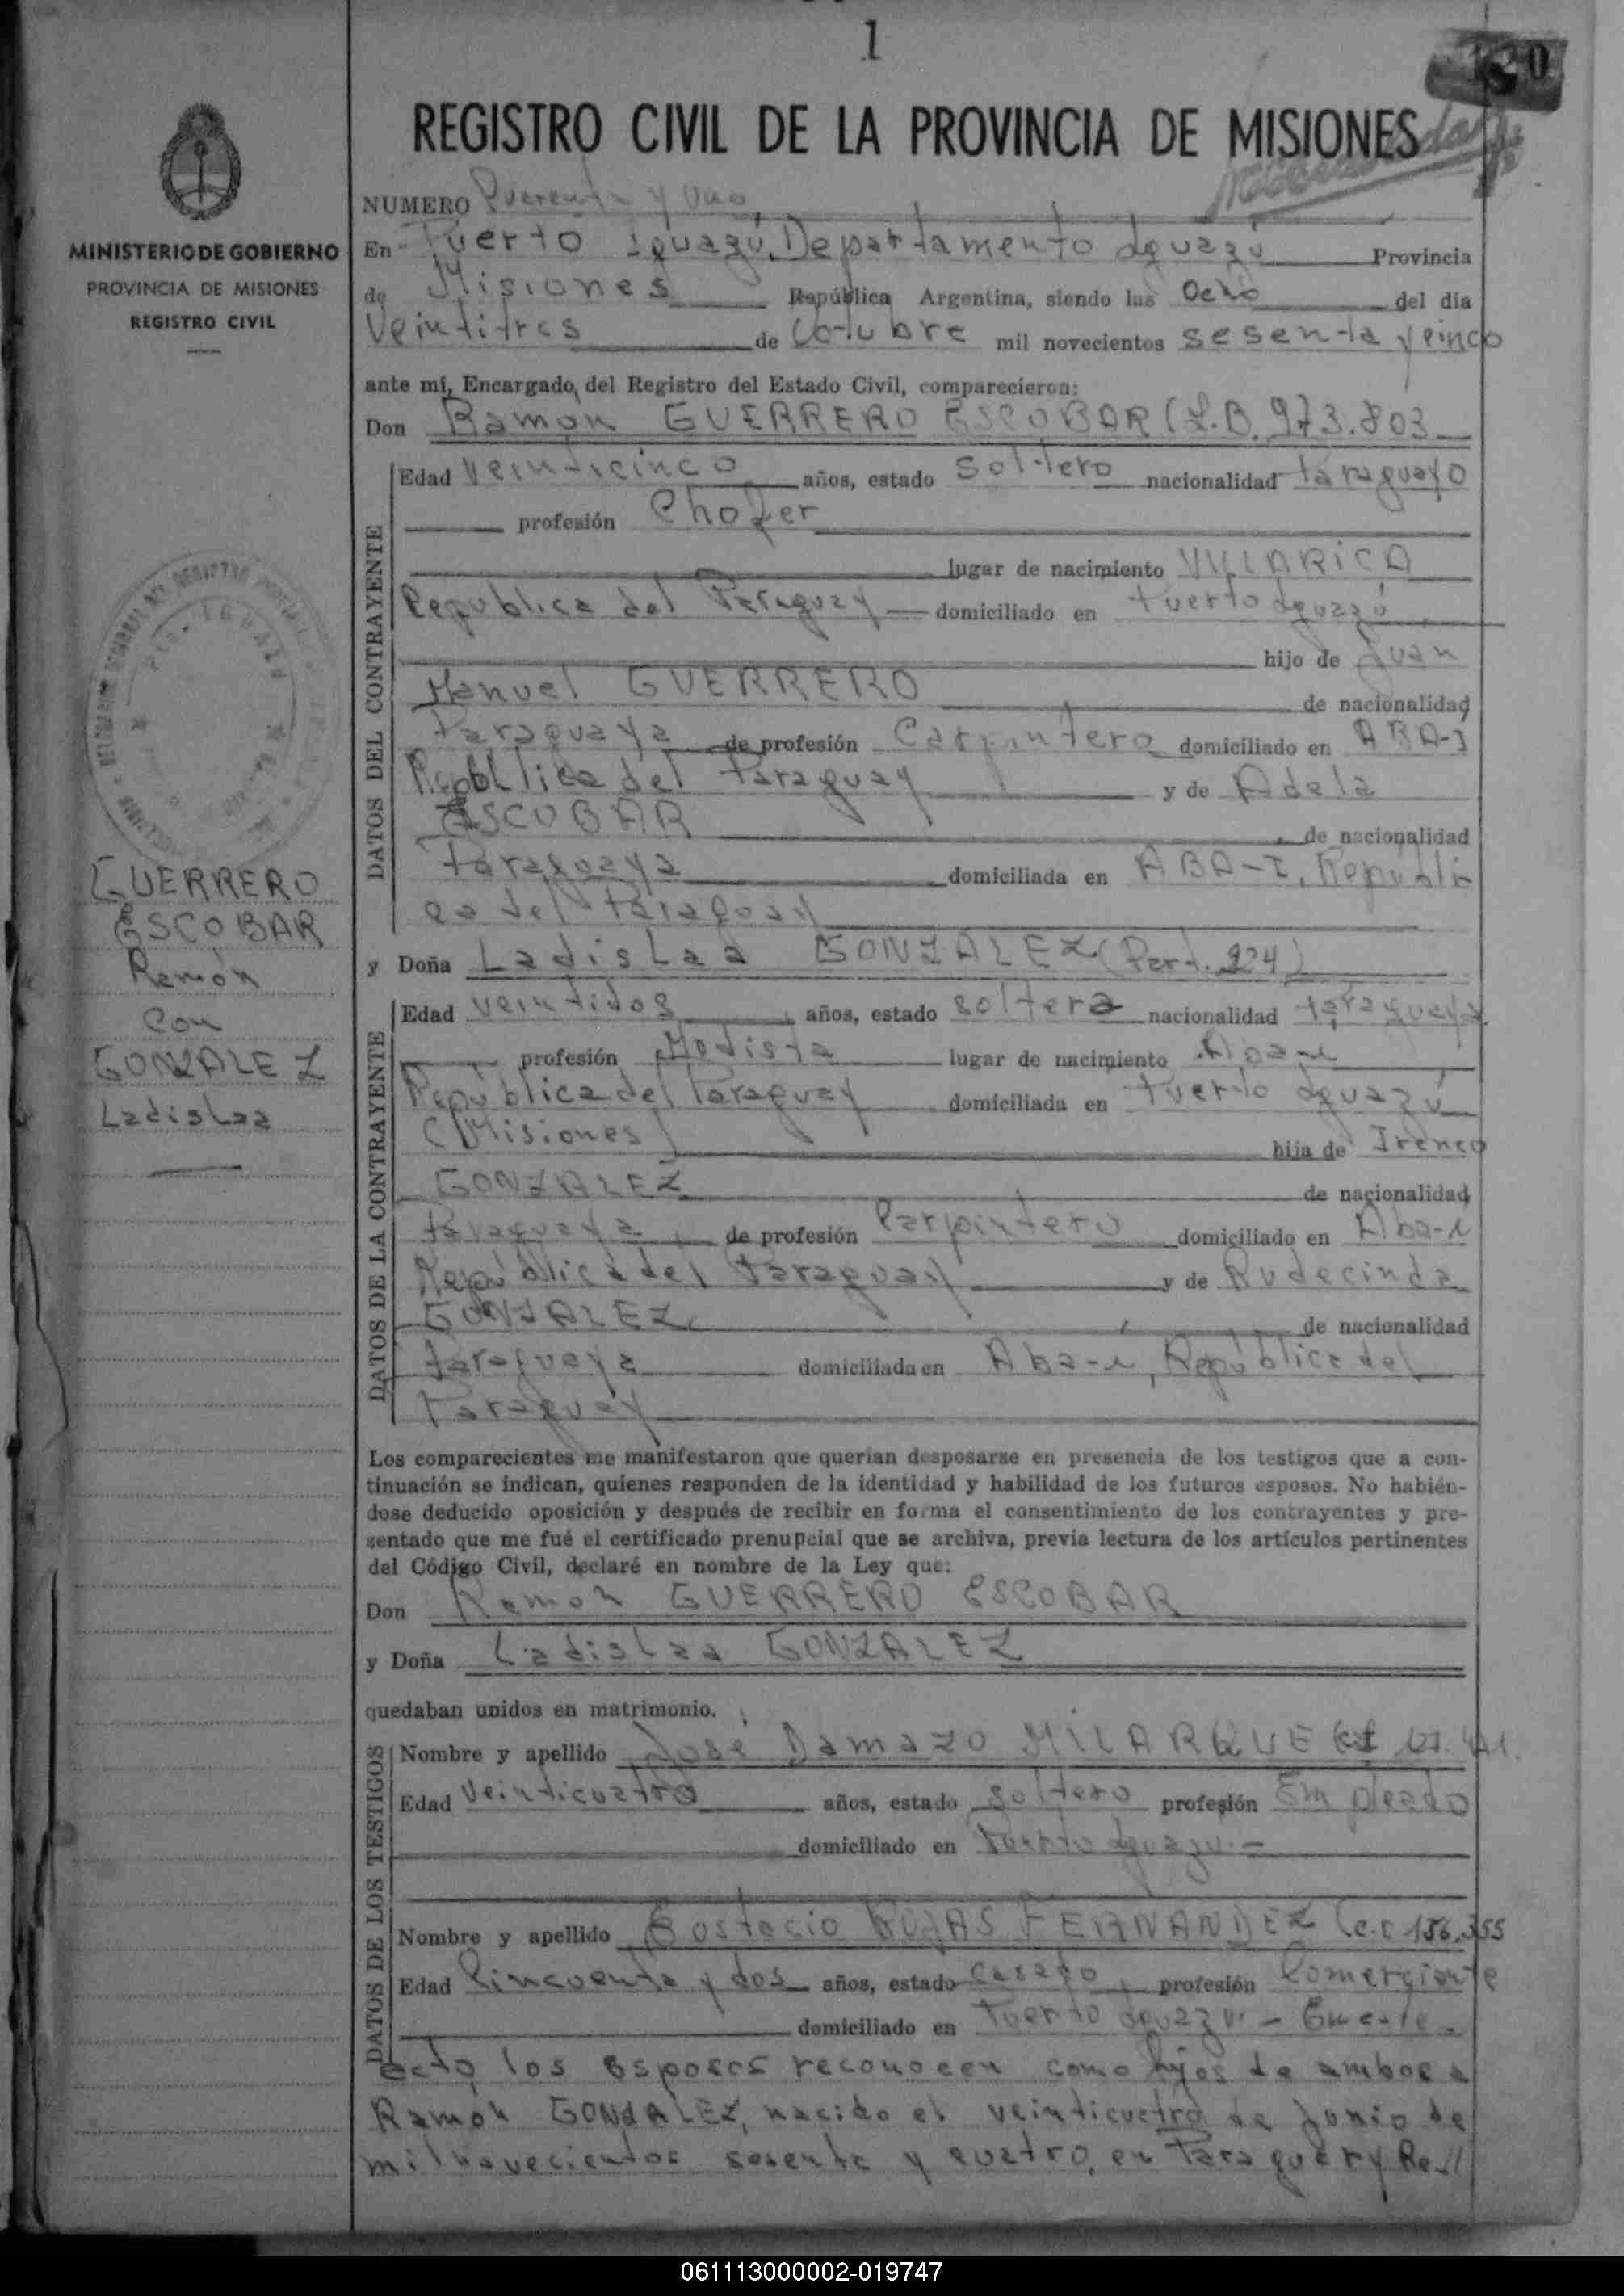 1
REGISTRO CIVIL DE LA PROVINCIA DE MISIONES
MINISTERIO DE GOBIERNO
PROVINCIA DE MISIONES
REGISTRO CIVIL
GUERRERO
ESCOBAR
Ramón
con
GONZALEZ
Ladislaa
NUMERO Querenta y Uno
En Puerto Iguazú, Departamento Iguazú Provincia
de Misiones República Argentina, siendo las Ocho del día
Veintitres de Octubre mil novecientos sesenta y cinco
ante mí, Encargado del Registro del Estado Civil, comparecieron:
Don Ramon GUERRERO ESCOBAR (L.B. 973.803
DATOS DEL CONTRAYENTE
Edad Veinticinco años, estado Soltero nacionalidad Paraguayo
profesión Chofer
lugar de nacimiento VILLARICA
Republica del Paraguay domiciliado en Puerto Iguazú
hijo de Juan
Manuel GUERRERO de nacionalidad
Paraguaya de profesión Carpintero domiciliado en ABA-I
República del Paraguay y de Adela
ESCOBAR de nacionalidad
Paraguaya domiciliada en ABA-I, Repúbli
ca del Paraguay
y Doña Ladislaa GONZALEZ (Part. 224)
DATOS DE LA CONTRAYENTE
Edad Veintidos años, estado soltera nacionalidad Paraguaya
profesión Modista lugar de nacimiento Aba-i
República del Paraguay domiciliada en Puerto Iguazú
(Misiones) hija de Ireneo
GONZALEZ de nacionalidad
Paraguaya de profesión Carpintero domiciliado en Aba-i
República del Paraguay y de Rudecinda
GONZALEZ de nacionalidad
Paraguaya domiciliada en Aba-i, República del
Paraguay
Los comparecientes me manifestaron que querían desposarse en presencia de los testigos que a con-
tinuación se indican, quienes responden de la identidad y habilidad de los futuros esposos. No habién-
dose deducido oposición y después de recibir en forma el consentimiento de los contrayentes y pre-
sentado que me fué el certificado prenupcial que se archiva, previa lectura de los artículos pertinentes
del Código Civil, declaré en nombre de la Ley que:
Don Ramon GUERRERO ESCOBAR
y Doña Ladislaa GONZALEZ
quedaban unidos en matrimonio.
DATOS DE LOS TESTIGOS
Nombre y apellido José Damazo MILARQUE
Edad Veinticuatro años, estado Soltero profesión Empleado
domiciliado en Puerto Iguazu.-
Nombre y apellido Eostacio ROJAS FERNANDEZ (C.C 156.355
Edad Cincuenta y dos años, estado casado, profesión Comerciante
domiciliado en Puerto Iguazu - En este
acto los Esposos reconocen como hijos de ambos a
Ramón GONZALEZ, nacido el veinticuatro de Junio de
mil novecientos sesenta y cuatro, en Paraguary Re//
061113000002-019747